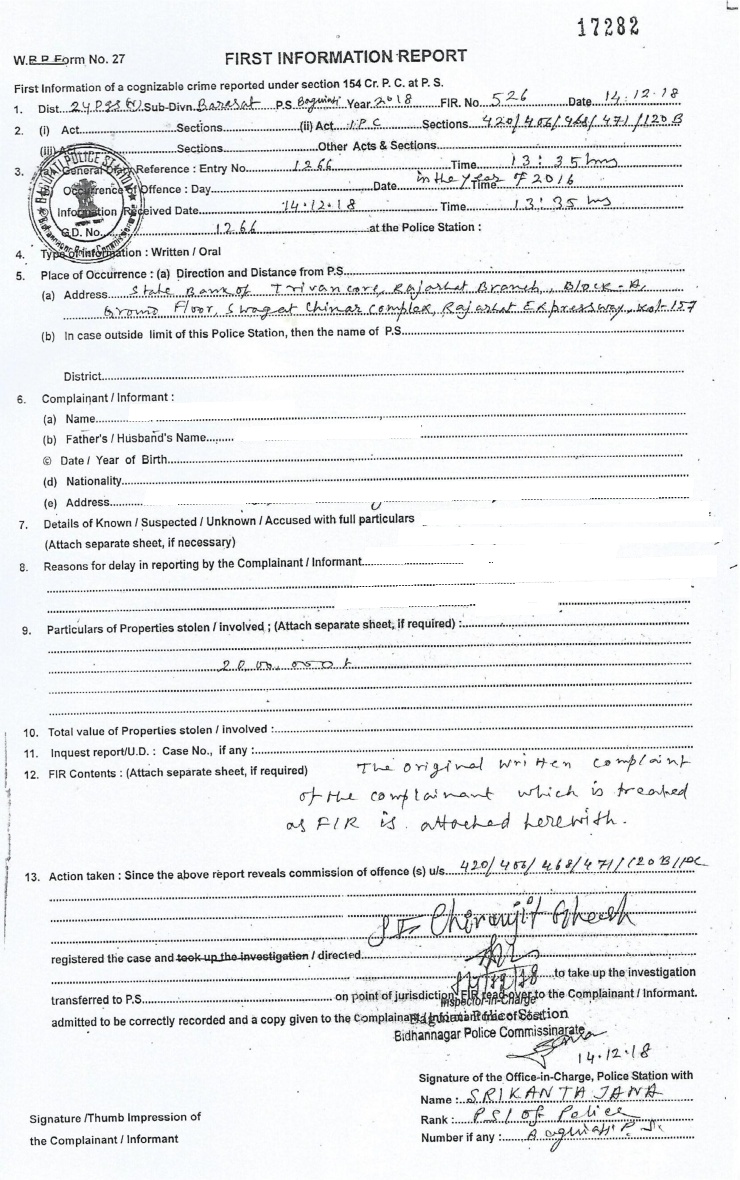 17282
W.B P Form No. 27
FIRST INFORMATION REPORT
First Information of a cognizable crime reported under section 154 Cr. P. C. at P. S.
1. Dist. 24 Pgs (N) Sub-Divn. Barasat P.S. Baguiati Year 2018 FIR. No. 526 Date 14.12.18
2. (i) Act Sections (ii) Act I.P.C Sections 420/406/468/471/120B
(iii) Sections Other Acts & Sections
3. (a) General Diary Reference : Entry No. 1266 Time 13:35 hrs
Occurrence of Offence : Day Date in the year of 2016 Time
Information Received Date 14.12.18 Time 13:35 hrs
G.D. No. 1266 at the Police Station :
4. Type of Information : Written / Oral
5. Place of Occurrence : (a) Direction and Distance from P.S.
(a) Address State Bank of Trivancore, Rajarhat Branch, Block-A,
Ground Floor, Swagat Chinar Complex, Rajarhat Expressway, Kol-157
(b) In case outside limit of this Police Station, then the name of P.S.
District
6. Complainant / Informant :
(a) Name
(b) Father's / Husband's Name
© Date / Year of Birth
(d) Nationality
(e) Address
7. Details of Known / Suspected / Unknown / Accused with full particulars
(Attach separate sheet, if necessary)
8. Reasons for delay in reporting by the Complainant / Informant
9. Particulars of Properties stolen / involved ; (Attach separate sheet, if required) :
10. Total value of Properties stolen / involved :
11. Inquest report/U.D. : Case No., if any :
12. FIR Contents : (Attach separate sheet, if required) The original written complaint
of the complainant which is treated
as FIR is attached herewith.
13. Action taken : Since the above report reveals commission of offence (s) u/s. 420/406/468/471/120B/IPC
SI Chiranjit Ghosh
registered the case and took up the investigation / directed
to take up the investigation
transferred to P.S. on point of jurisdiction, FIR read over to the Complainant / Informant.
Inspector-in-Charge
admitted to be correctly recorded and a copy given to the Complainant / Informant free of cost
Baguiati Police Station
Bidhannagar Police Commissinarate
14.12.18
Signature of the Office-in-Charge, Police Station with
Name : SRIKANTA JANA
Rank : PSI of Police
Number if any : Baguiati P.S.
Signature /Thumb Impression of
the Complainant / Informant